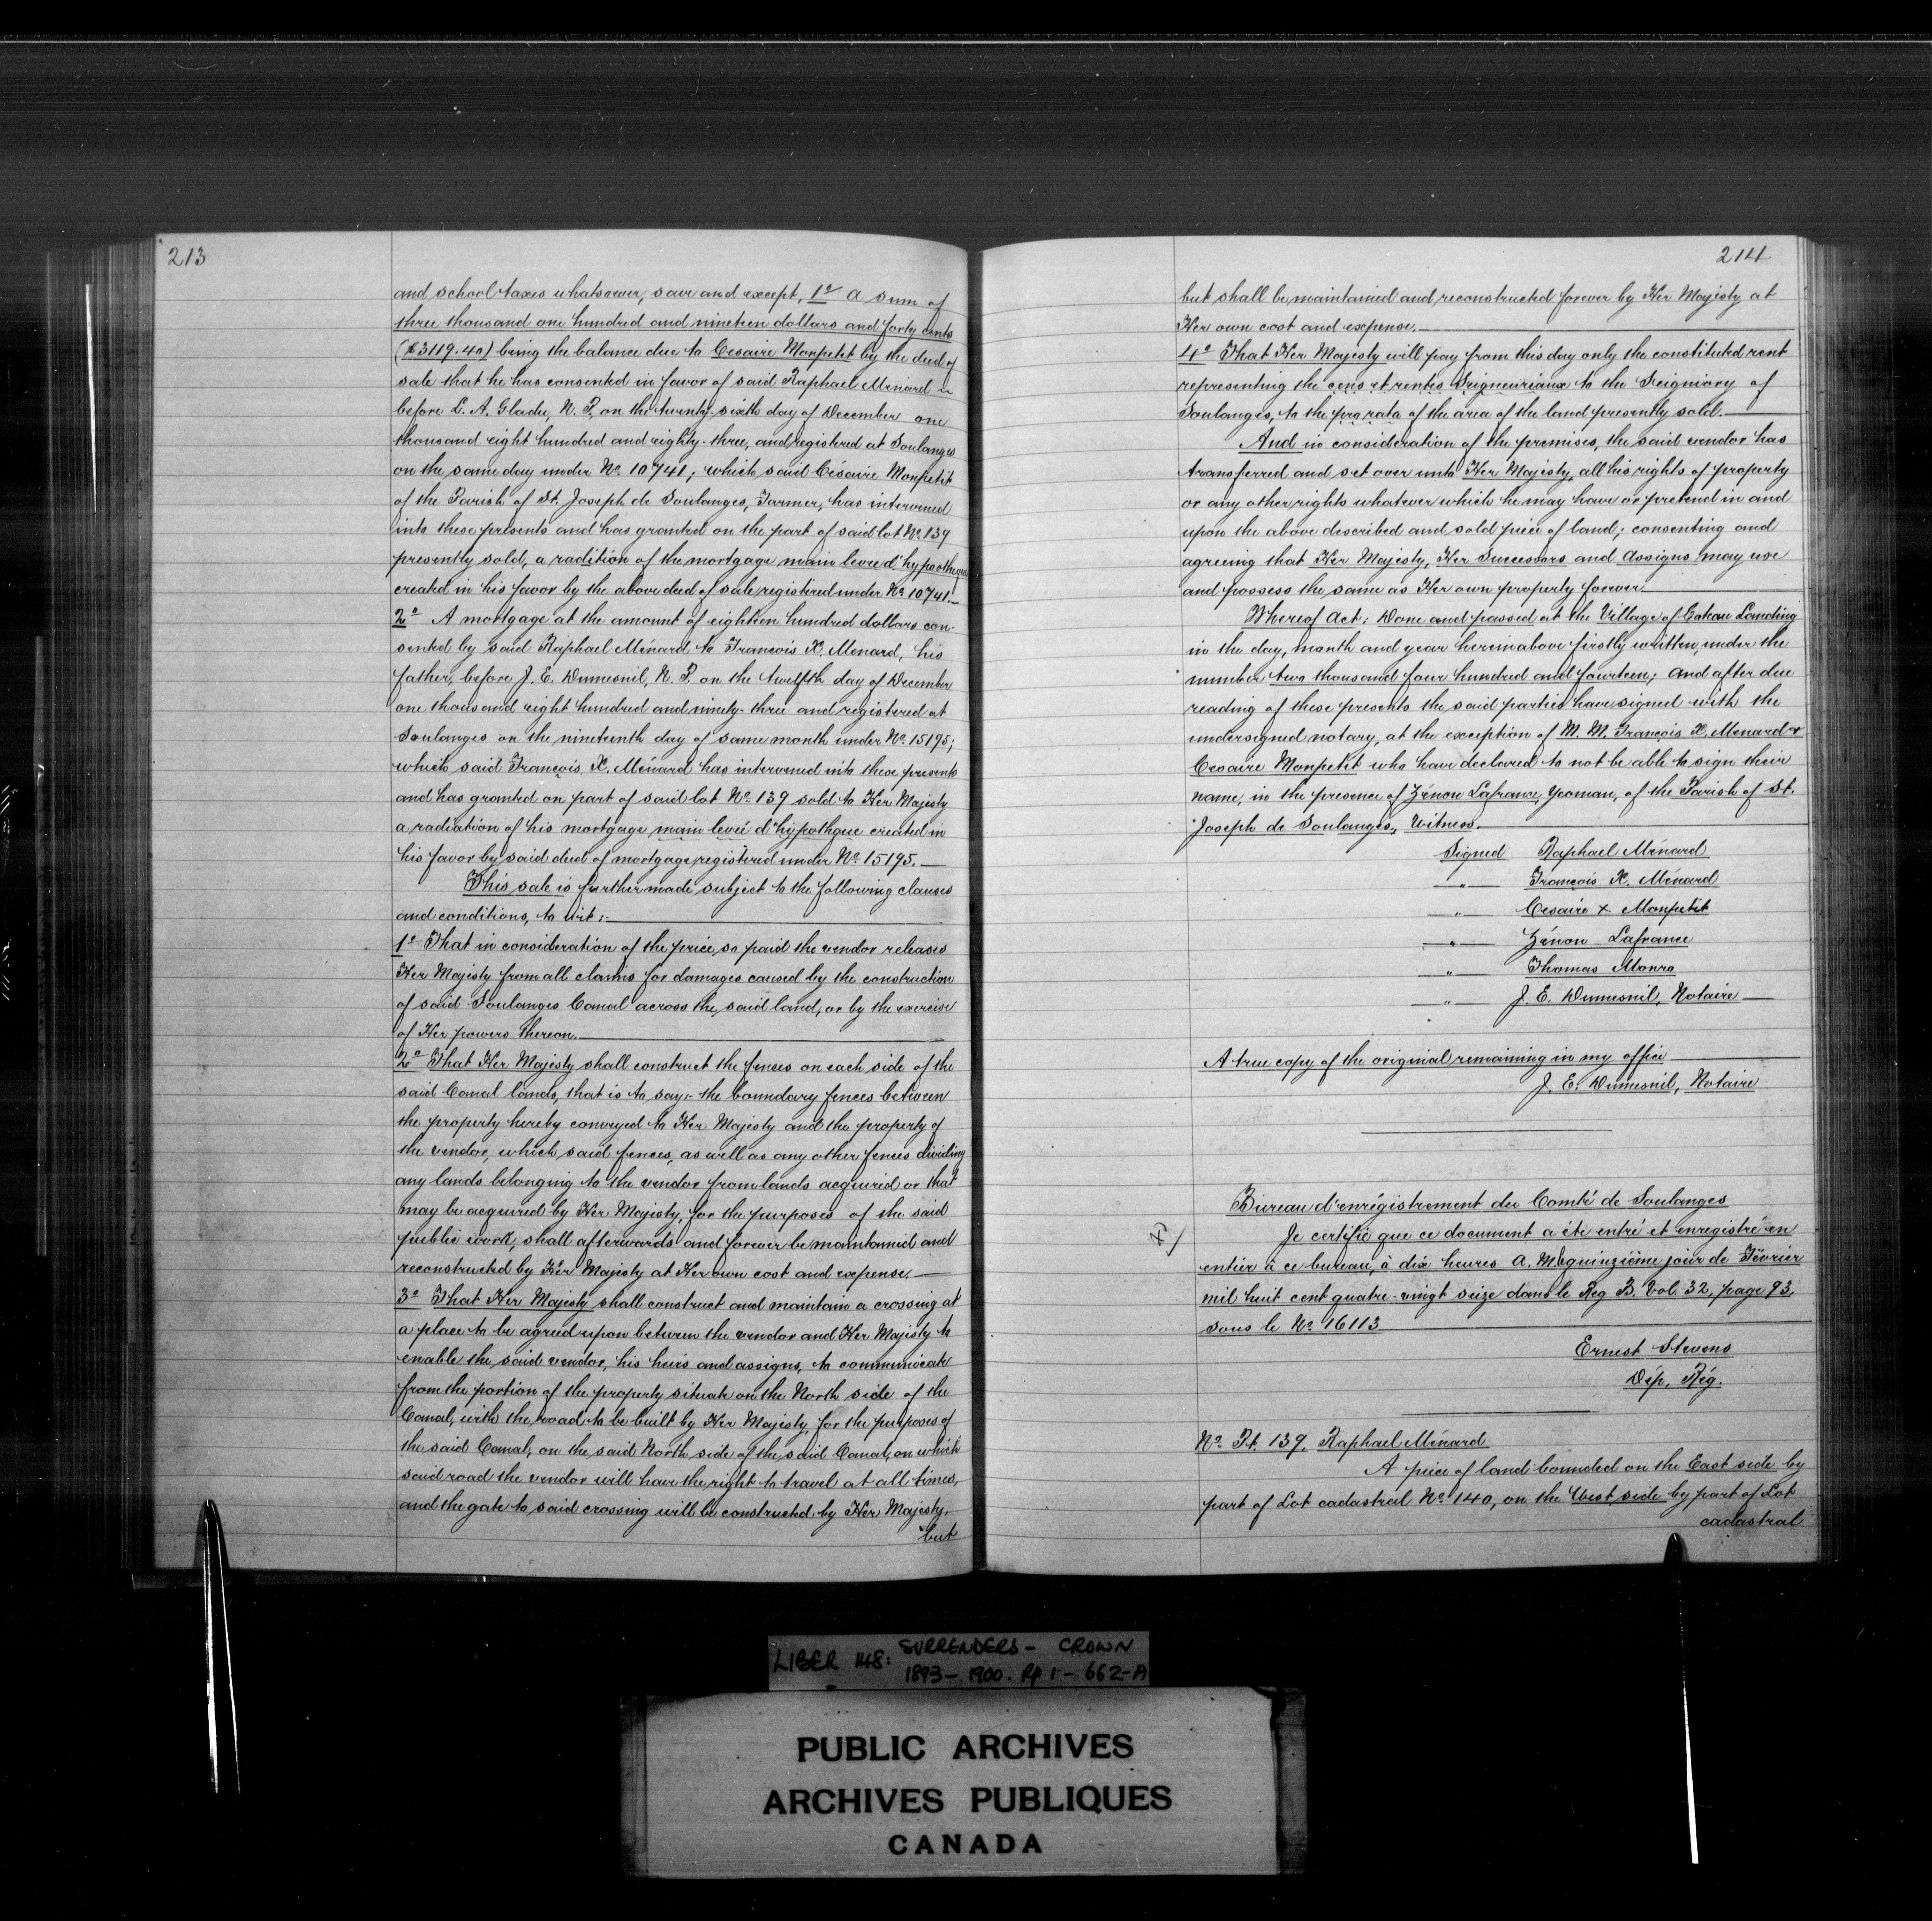 213
and school taxes whatsoever, save and except, 1º a sum of
three thousand one hundred and nineteen dollars and forty cents
($3119.40) being the balance due to Cesaire Monpetit by the deed of
sale that he has consented in favor of said Raphael Ménard
before L. A. Glade, N. P. on the twenty sixth day of December one
thousand eight hundred and eighty-three, and registered at Soulanges
on the same day under Nº 10741; which said Césaire Monpetit
of the Parish of St. Joseph de Soulanges, Farmer, has intervened
into these presents and has granted on the part of said lot Nº 139
presently sold, a radition of the mortgage main leveé d'hypotheque
created in his favor by the above deed of sale registered under Nº 10741.
2º A mortgage at the amount of eighteen hundred dollars con-
sented by said Raphael Ménard to Francois X. Menard, his
father, before J. E. Dumesnil, N. P. on the twelfth day of December
one thousand eight hundred and ninety-three and registered at
Soulanges on the nineteenth day of same month under Nº 15195;
which said François X. Ménard has intervened into these presents
and has granted on part of said lot Nº 139 sold to Her Majesty
a radiation of his mortgage main leveé d'hypothque created in
his favor by said deed of mortgage registered under Nº 15195.
This sale is further made subject to the following clauses
and conditions, to wit:
1º That in consideration of the price, so paid the vendor releases
Her Majesty from all claims for damages caused by the construction
of said Soulanges Canal across the said land, or by the exercise
of Her powers thereon.
2º That Her Majesty shall construct the fences on each side of the
said Canal lands, that is to say:- the boundary fences between
the property hereby conveyed to Her Majesty and the property of
the vendor, which said fences, as well as any other fences dividing
any lands belonging to the vendor from lands acquired or that
may be acquired by Her Majesty, for the purposes of the said
public work, shall afterwards and forever be maintained and
reconstructed by Her Majesty at Her own cost and expense.
3º That Her Majesty shall construct and maintain a crossing at
a place to be agreed upon between the vendor and Her Majesty to
enable the said vendor, his heirs and assigns, to communicate
from the portion of the property situate on the North side of the
Canal, with the road to be built by Her Majesty, for the purposes of
the said Canal, on the said North side of the said Canal, on which
said road the vendor will have the right to travel at all times,
and the gate to said crossing will be constructed by Her Majesty,
but
214
but shall be maintained and reconstructed forever by Her Majesty at
Her own cost and expense.
4º That Her Majesty will pay from this day only the constituted rent
representing the cens et rentes Seigneuriaux to the Seigniory of
Soulanges, to the pro rata of the area of the land presently sold.
And in consideration of the premises, the said vendor has
transferred and set over unto Her Majesty, all his rights of property
or any other rights whatever which he may have or pretend in and
upon the above described and sold piece of land; consenting and
agreeing that Her Majesty, Her Successors and Assigns may use
and possess the same as Her own property forever.
Whereof Act; Done and passed at the Village of Coteau Landing
in the day, month and year hereinabove firstly written, under the
number two thousand four hundred and fourteen; and after due
reading of these presents the said parties have signed with the
undersigned notary, at the exception of M. M. François X. Menard &
Cesaire Monpetit who have declared to not be able to sign their
name, in the presence of Zénon Lafrance, Yeoman, of the Parish of St.
Joseph de Soulanges, Witness.
Signed Raphael Ménard
" François X. Ménard
" Cesaire X Monpetit
" Zénon Lafrance
" Thomas Monro
" J. E. Dumesnil, Notaire
A true copy of the original remaining in my office
J. E. Dumesnil, Notaire
Bureau d'enrégistrement du Comté de Soulanges
Je certifie que ce document a été entré et enregistré en
entier à ce bureau, à dix heures A. M. quinzième jour de Février
mil huit cent quatre-vingt seize dans le Reg B. Vol. 32, page 93,
sous le Nº 16113
Ernest Stevens
Dép. Rég.
Nº Pt. 139. Raphael Ménard
A piece of land bounded on the East side by
part of Lot cadastral Nº 140, on the West side by part of Lot
cadastral
LIBER 148: SURRENDERS - CROWN
1893 - 1900. Pp 1 - 662-A
PUBLIC ARCHIVES
ARCHIVES PUBLIQUES
CANADA